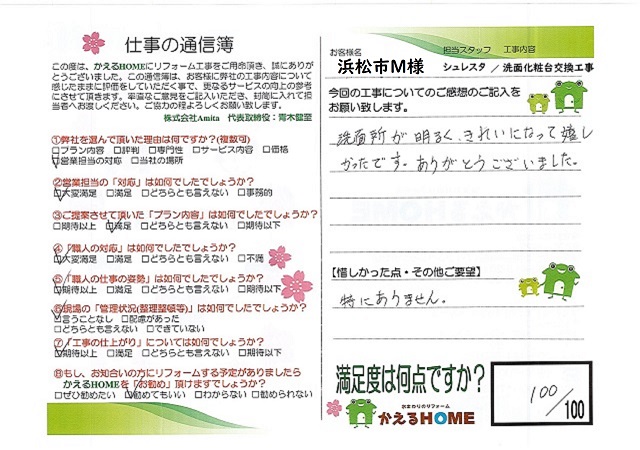 仕事の通信簿
この度は、かえるHOMEにリフォーム工事をご用命頂き、誠にありが
とうございました。この通信簿は、お客様に弊社の工事内容について
感じたままに評価をしていただく事で、更なるサービスの向上の参考
にさせて頂きます。率直なご意見をご記入いただき、封筒に入れて担
当者へお渡しください。ご協力の程よろしくお願い致します。
株式会社Amita 代表取締役:青木健至
①弊社を選んで頂いた理由は何ですか?(複数可)
□プラン内容 □評判 □専門性 □サービス内容 □価格
□営業担当の対応 □当社の場所
②営業担当の「対応」は如何でしたでしょうか?
□大変満足 □満足 □どちらとも言えない □事務的
③ご提案させて頂いた「プラン内容」は如何でしたでしょうか?
□期待以上 □満足 □どちらとも言えない □期待以下
④「職人の対応」は如何でしたでしょうか?
□大変満足 □満足 □どちらとも言えない □不満
⑤「職人の仕事の姿勢」は如何でしたでしょうか?
□期待以上 □満足 □どちらとも言えない □期待以下
⑥現場の「管理状況(整理整頓等)」は如何でしたでしょうか?
□言うことなし □配慮があった
□どちらとも言えない □できていない
⑦「工事の仕上がり」については如何でしょうか?
□期待以上 □満足 □どちらとも言えない □期待以下
⑧もし、お知合いの方にリフォームする予定がありましたら
かえるHOMEを「お勧め」頂けますでしょうか?
□ぜひ勧めたい □勧めてもいい □わからない □勧められない
お客様名 担当スタッフ 工事内容
浜松市M様 シュレスタ / 洗面化粧台交換工事
今回の工事についてのご感想のご記入を
お願い致します。
洗面所が明るく、きれいになって嬉し
かったです。ありがとうございました。
【惜しかった点・その他ご要望】
特にありません。
満足度は何点ですか?
100/100
水まわりのリフォーム
かえるHOME